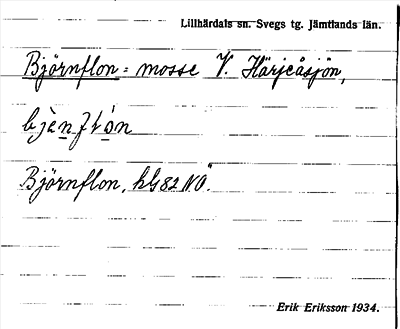 Lillhärdals sn. Svegs tg. Jämtlands län.
Björnflon = mosse V. Härjeåsjön,
Björnflon, hG 82 NO.
Erik Eriksson 1934.